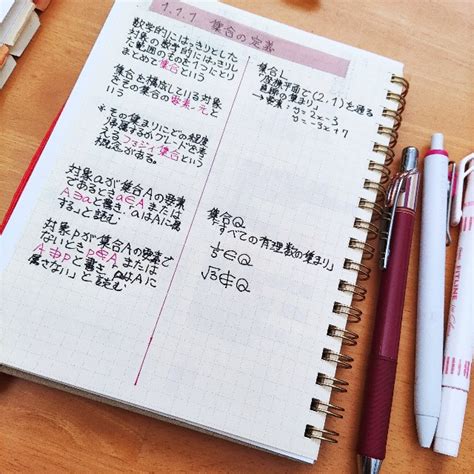 1.1.1 集合の定義
数学的にはっきりとした
対象の数学的にはっきりし
た範囲のものを1つにとり
まとめて集合という
集合を構成している対象
をその集合の要素、元と
いう
*その集まりにどの程度
帰属するかグレードを考
えるファジイ集合という
概念がある。
対象aが集合Aの要素
であるときa∈Aまたは
A∋aと書き、aはAに属
する」と読む
対象pが集合Aの要素で
ないとき、p∉Aまたは
A∌pと書き、pはAに
属さない」と読む
集合L
「座標平面で(2,1)を通る
直線の集まり」
→要素:y=2x-3
y=-3x+7
集合Q
「すべての有理数の集まり」
∈Q
∉Q